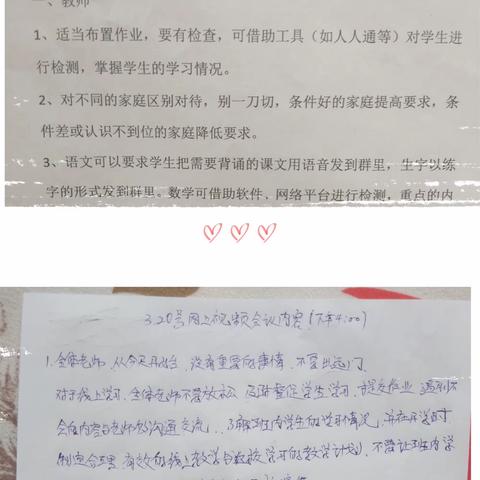 一、教师
1、适当布置作业，要有检查，可借助工具（如人人通等）对学生进
行检测，掌握学生的学习情况。
2、对不同的家庭区别对待，别一刀切，条件好的家庭提高要求，条
件差或认识不到位的家庭降低要求。
3、语文可以要求学生把需要背诵的课文用语音发到群里，生字以练
字的形式发到群里。数学可借助软件、网络平台进行检测，重点的内
3.20号网上视频会议内容(下午4:00)
1.全体老师，从今天开始，没有重要的事情，不要出远门
对于线上学习，全体老师不要放松，及时督促学生学习，提交作业，遇到不
会的内容与老师多沟通交流，了解班内学生的学习情况，并在开学时
制定合理、有效的线上教学与返校学习的教学计划，不要让班内学